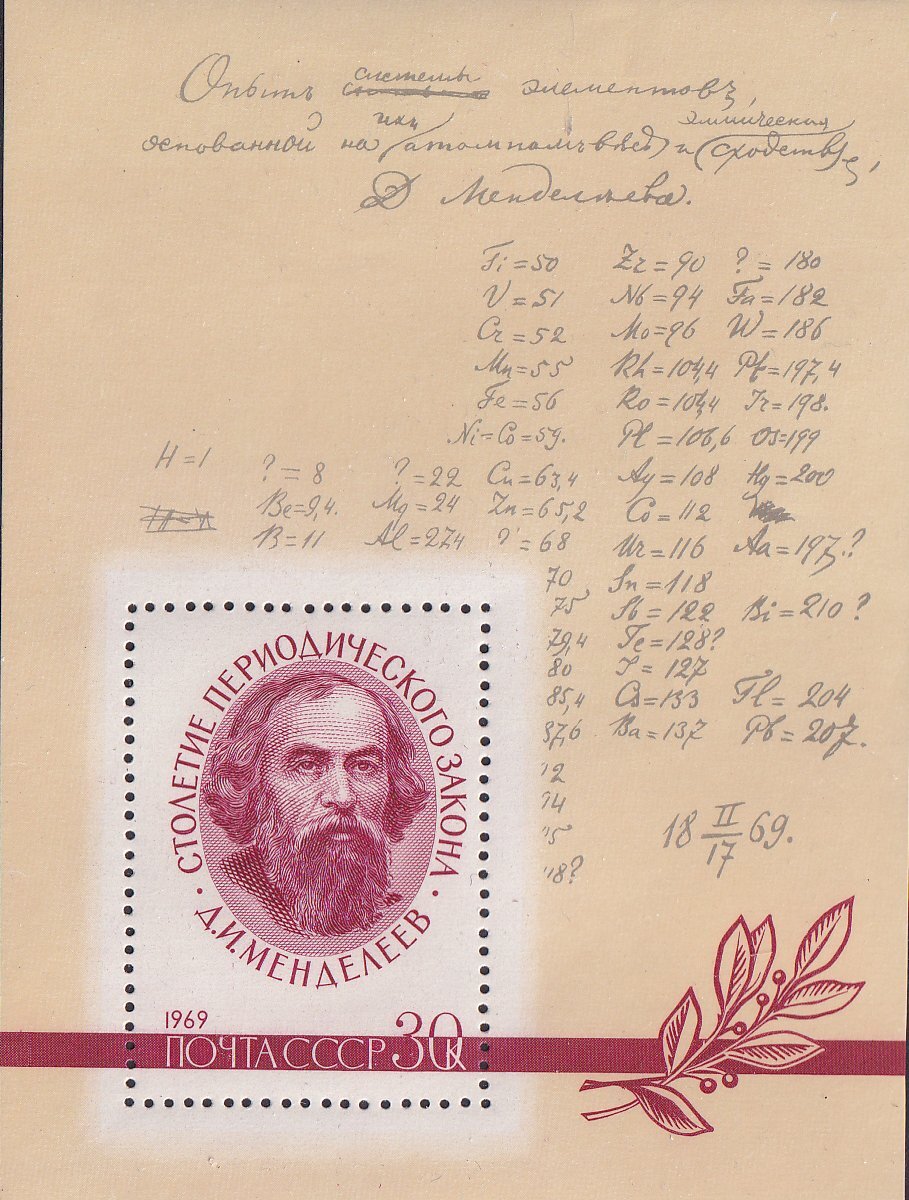 системы
Опытъ элементовъ,
ихъ химическая
основанной на атомномъ вѣсѣ и сходствѣ,
Д Менделѣева.
Ti = 50 Zr = 90 ? = 180
V = 51 Nb = 94 Ta = 182
Cr = 52 Mo = 96 W = 186
Mn = 55 Rh = 104,4 Pt = 197,4
Fe = 56 Ro = 104,4 Ir = 198.
Ni = Co = 59. Pl = 106,6 Os = 199
H = 1 ? = 8 ? = 22 Cu = 63,4 Ag = 108 Hg = 200
Be = 9,4. Mg = 24 Zn = 65,2 Cd = 112
B = 11 Al = 27,4 ? = 68 Ur = 116 Au = 197.?
70 Sn = 118
75 Sb = 122 Bi = 210 ?
79,4 Te = 128?
80 J = 127
85,4 Cs = 133 Tl = 204
87,6 Ba = 137 Pb = 207.
92
94
95
18 II/17 69.
118?
СТОЛЕТИЕ ПЕРИОДИЧЕСКОГО ЗАКОНА
· Д.И.МЕНДЕЛЕЕВ ·
1969
ПОЧТА СССР 30к